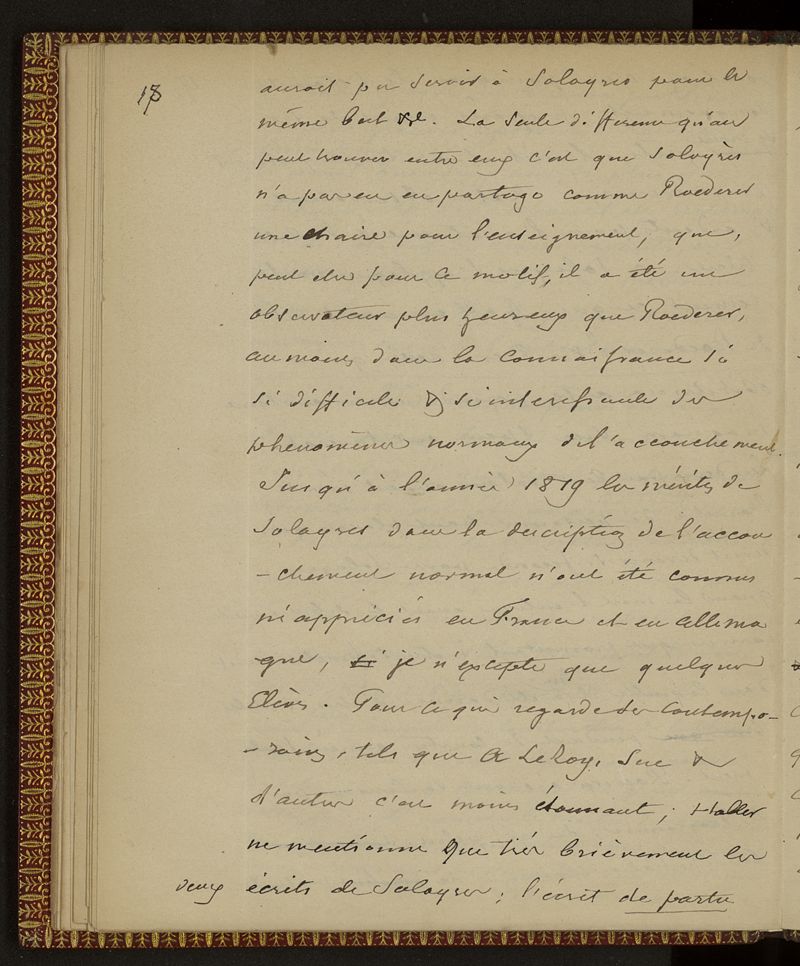 17
auroit pu servir à Solayres pour le
même but &c. La seule différence qu'on
peut trouver entre eux c'est que Solayrès
n'a pas eu en partage comme Roederer
une chaire pour l'enseignement, que,
peut etre pour ce motif, il a été un
observateur plus heureux que Roederer,
au moins dans la connaissance si
si difficile & si interessante des
phenomènes normaux de l'accouchement.
Jusqu'à l'année 1819 les mérites de
Solayres dans la description de l'accou
-chement normal n'ont été connus
ni appréciés en France et en Allema
gne, si je n'excepte que quelques
Elèves. Pour ce qui regarde les contempo-
-rains, tels que A LeRoy, Sue &
d'autres c'est moins étonnant; Haller
ne mentionne que très brièvement les
deux écrits de Solayres; l'écrit de partu